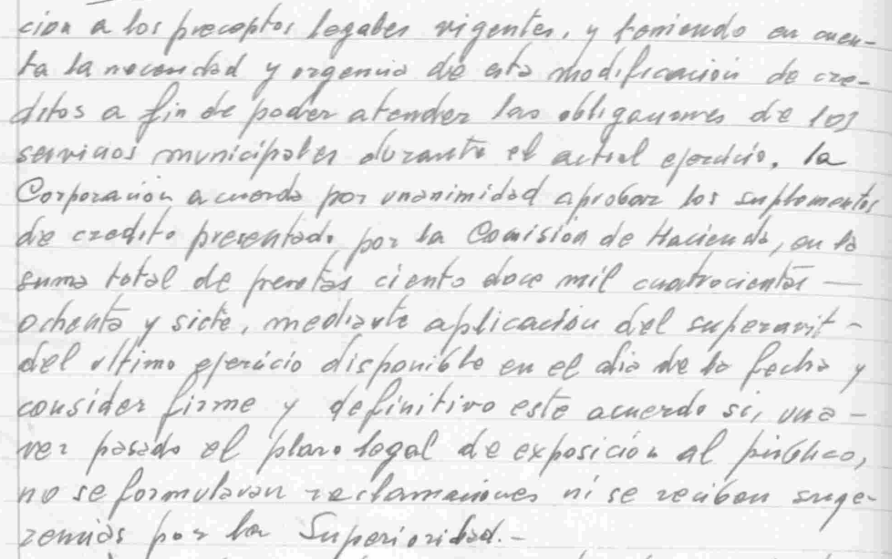 cion a los preceptos legales vigentes, y teniendo en cuen-
ta la necesidad y urgencia de esta modificación de cre-
ditos a fin de poder atender las obligaciones de los
servicios municipales durante el actual ejercicio, la
Corporación acuerda por unanimidad aprobar los suplementos
de credito presentado por la Comisión de Hacienda, en la
suma total de pesetas ciento doce mil cuatrocientas —
ochenta y siete, mediante aplicación del superavit -
del ultimo ejercicio disponible en el dia de la fecha y
consider firme y definitivo este acuerdo si, una -
vez pasado el plazo legal de exposición al público,
no se formularan reclamaciones ni se reciben suge-
rencias por la Superioridad.-